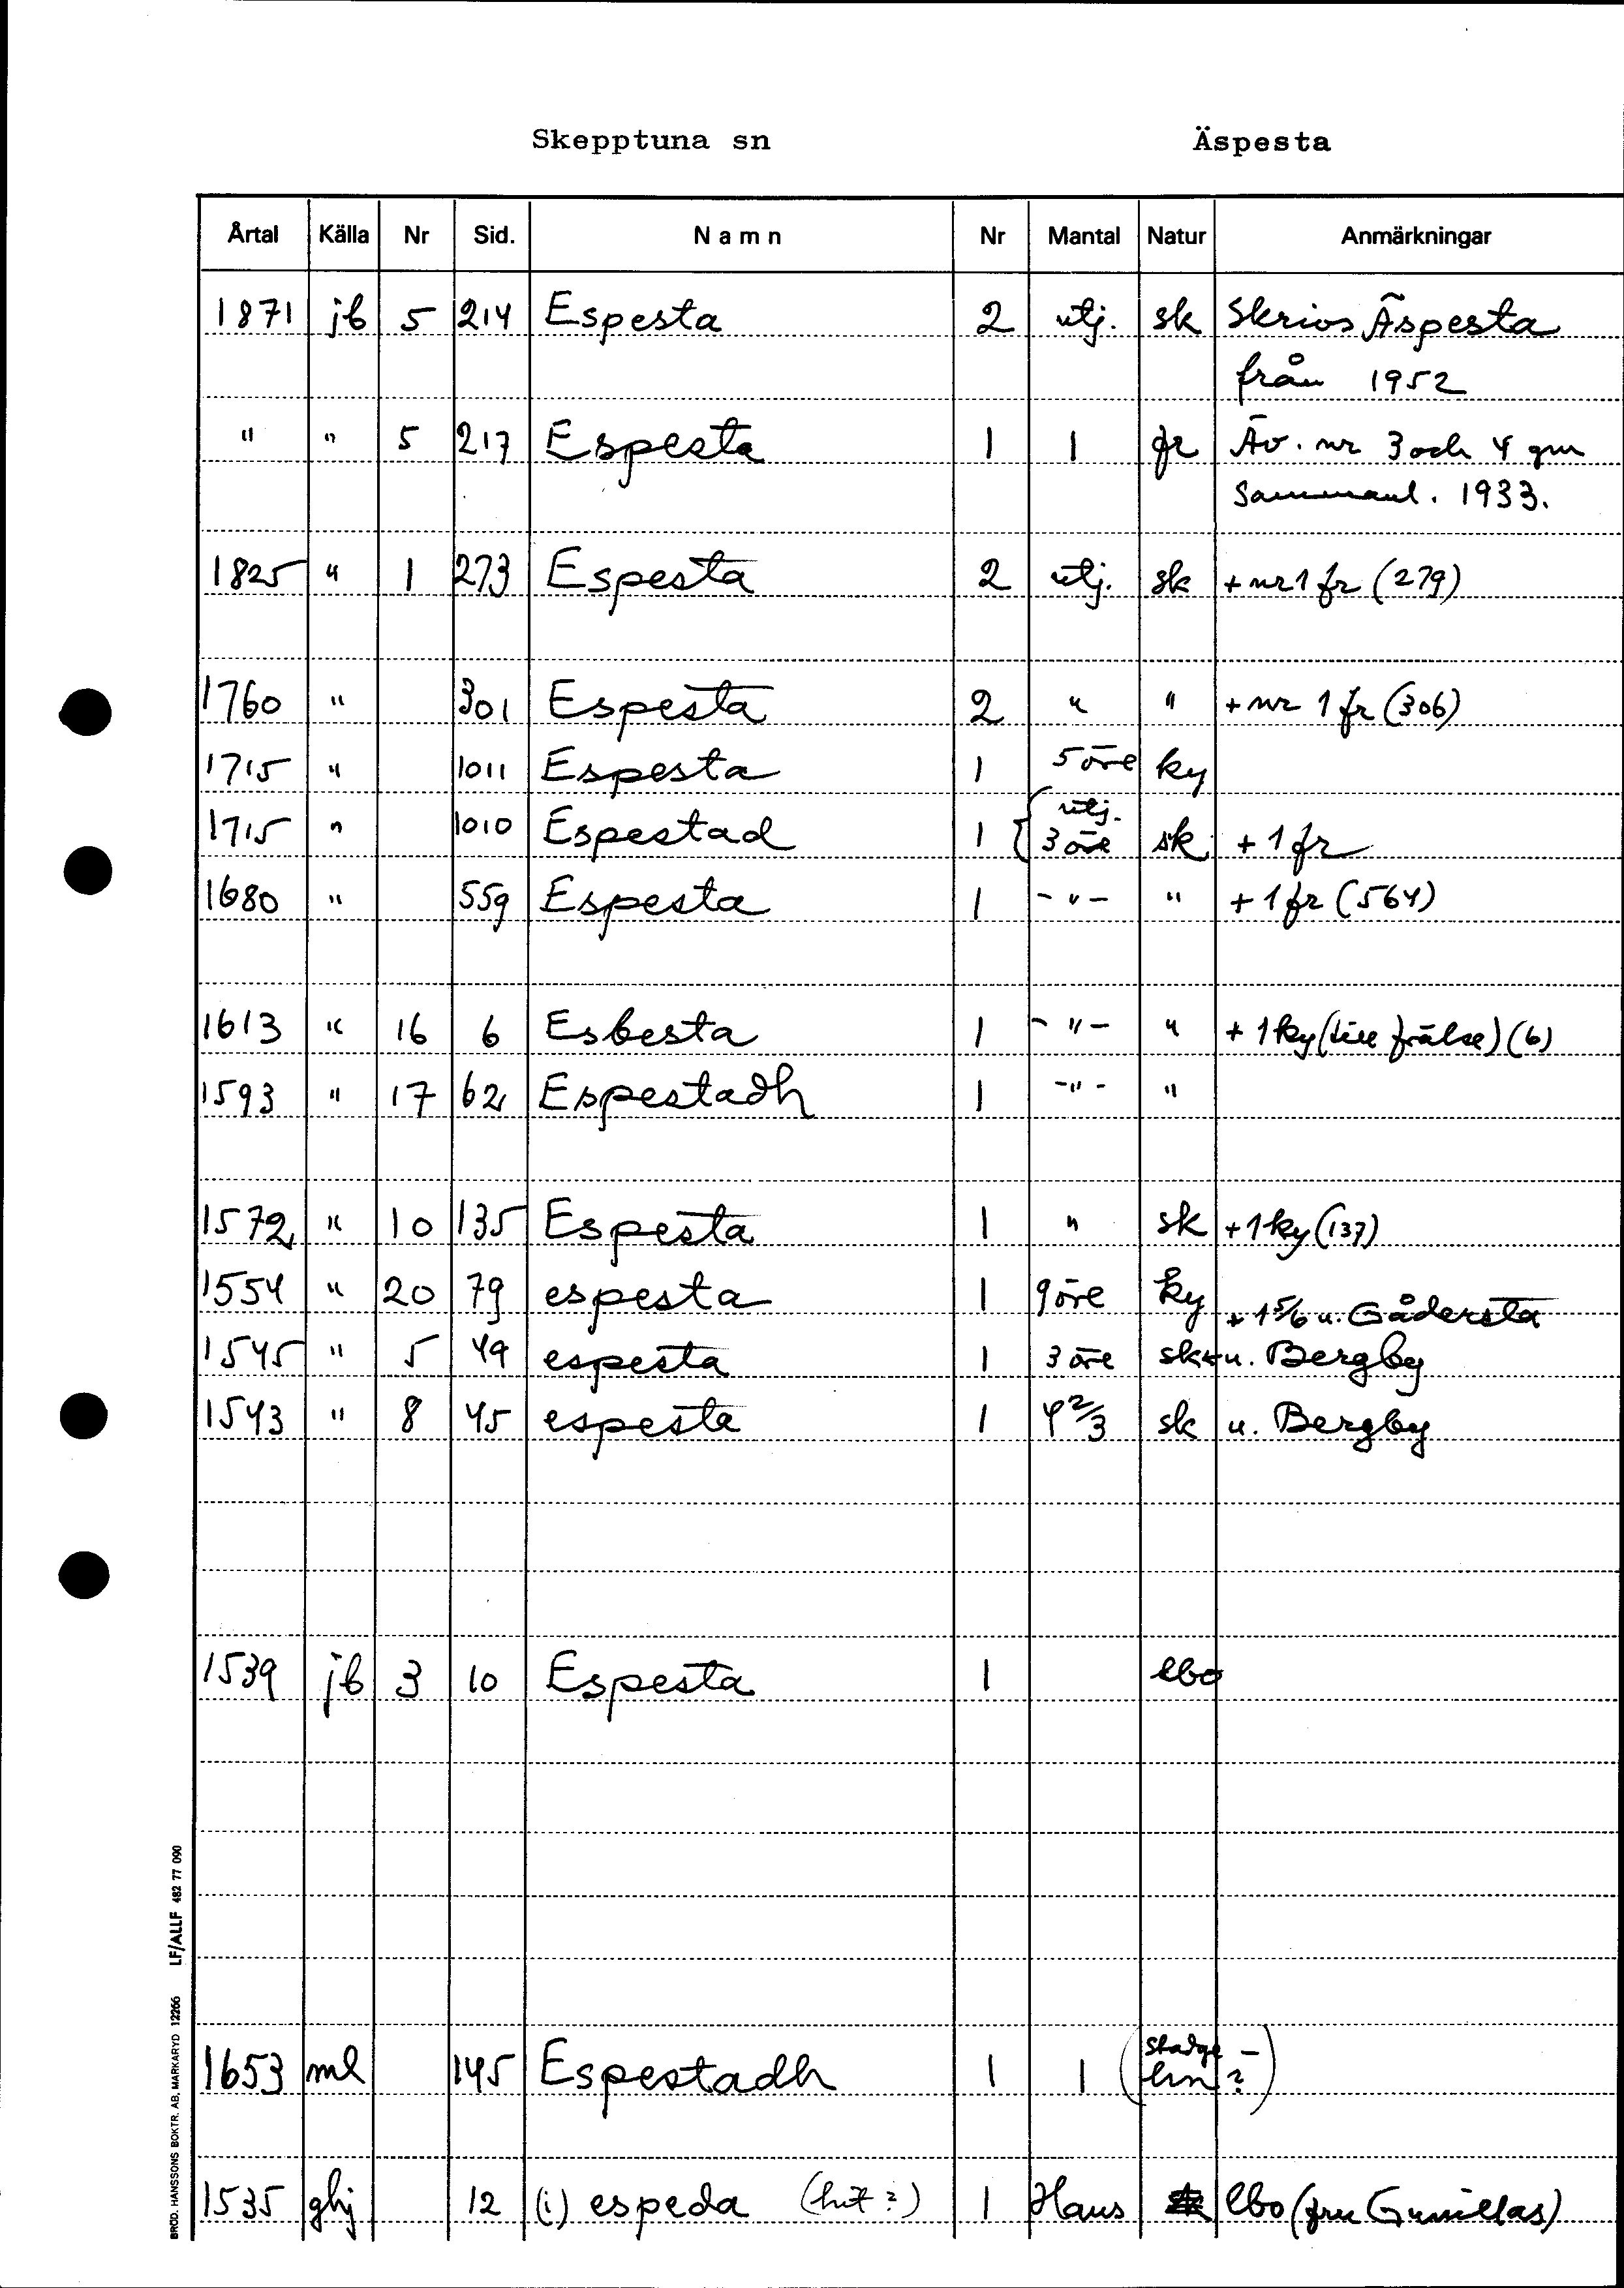 Skepptuna sn Äspesta
Årtal Källa Nr Sid. Namn Nr Mantal Natur Anmärkningar
1871 jb 5 214 Espesta 2 utj. sk Skrivs Äspesta
från 1952
" " 5 217 Espesta 1 1 fr Äv. nr 3 och 4 gm
Sammanl. 1933.
1825 " 1 273 Espesta 2 utj. sk + nr 1 fr (279)
1760 " 301 Espesta 2 " " + nr 1 fr (306)
1715 " 1011 Espesta 1 5 öre ky
utj.
1715 " 1010 Espestad 1 { 3 öre sk + 1 fr
1680 " 559 Espesta 1 -"- " + 1 fr (564)
1613 " 16 6 Esbesta 1 -"- " + 1 ky (till frälse) (6)
1593 " 17 62 Espestadh 1 -"- "
1572 " 10 135 Espesta 1 " sk + 1 ky (137)
1554 " 20 79 espesta 1 9 öre ky + 1 5/6 u. Gådersta
1545 " 5 49 espesta 1 3 öre sk u. Bergby
1543 " 8 45 espesta 1 4 2/3 sk u. Bergby
1539 jb 3 10 Espesta 1 lbo
1653 ml 145 Espestadh 1 1 (
hn ? )
1535 ghj 12 (i) espeda (hit?) 1 Hans lbo (fru Gunillas)
BRÖD. HANSSONS BOKTR. AB, MARKARYD 12266 LF/ALLF 482 77 090